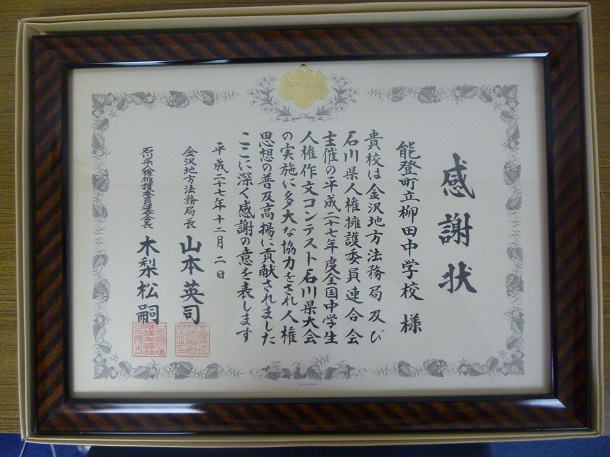 感謝状
能登町立柳田中学校 様
貴校は金沢地方法務局及び
石川県人権擁護委員連合会
主催の平成二十七年度全国中学生
人権作文コンテスト石川県大会
の実施に多大な協力をされ人権
思想の普及高揚に貢献されました
ここに深く感謝の意を表します
平成二十七年十二月二日
金沢地方法務局長 山本英司
石川県人権擁護委員連合会長 木梨松嗣